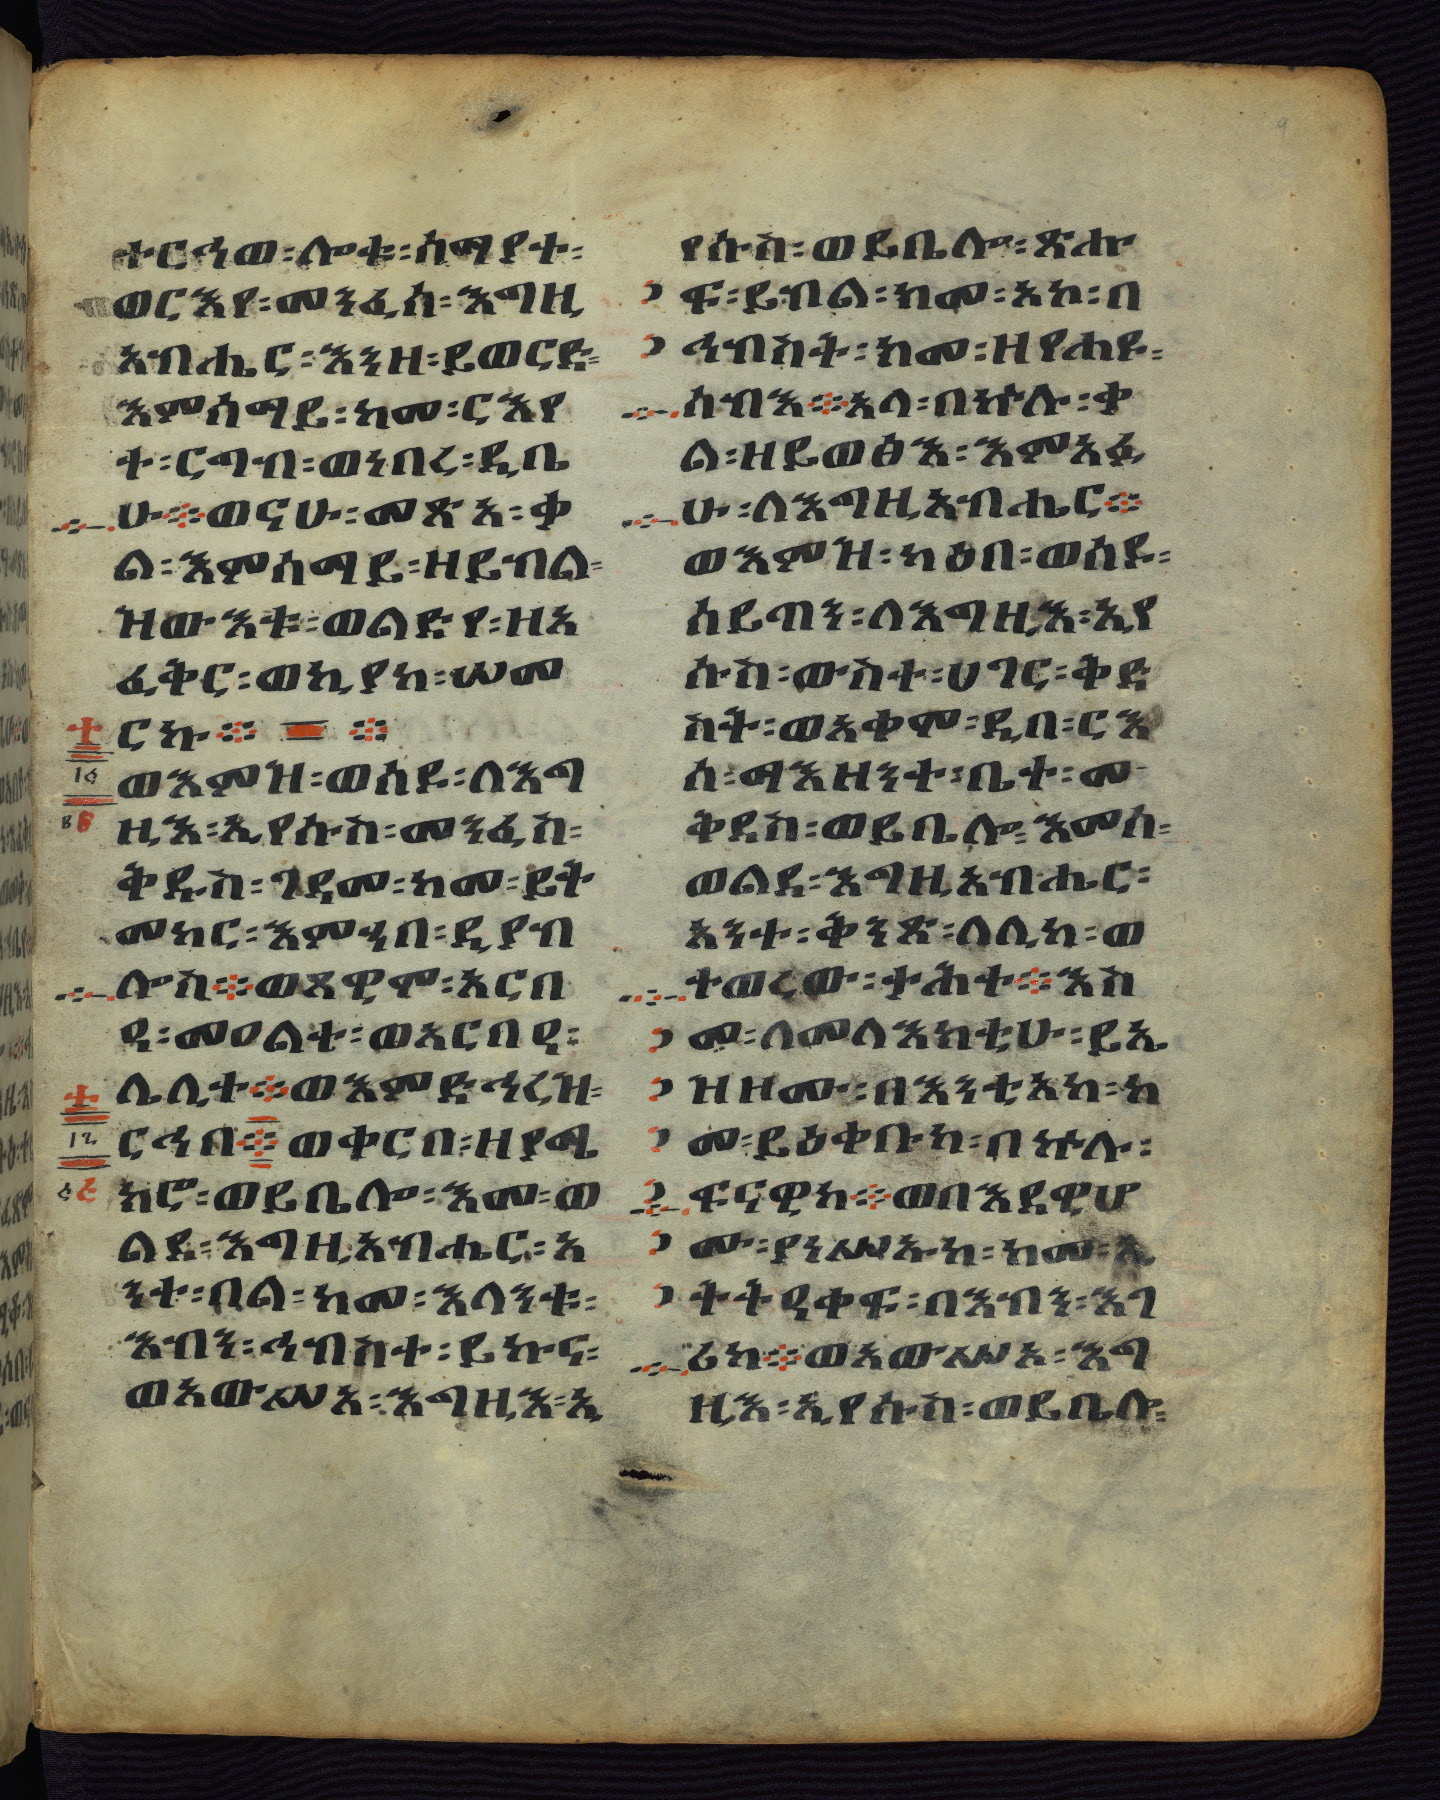 ተርኅወ፡ሎቱ፡ሰማያት፡
ወርእየ፡መንፈሰ፡እግዚ
አብሔር፡እንዘ፡ይወርድ፡
እምሰማይ፡ከመ፡ርእየ
ተ፡ርግብ፡ወነበረ፡ዲቤ
ሁ፨ወናሁ፡መጽአ፡ቃ
ል፡እምሰማይ፡ዘይብል፡
ዝውእቱ፡ወልድየ፡ዘአ
ፈቅር፡ወኪያከ፡ሠመ
ርኩ፨ ፨
ወእምዝ፡ወሰዶ፡ለእግ
ዚእ፡ኢየሱስ፡መንፈስ፡
ቅዱስ፡ገዳመ፡ከመ፡ይት
መከር፡እምኀበ፡ዲያብ
ሎስ፨ወጾመ፡አርብ
ዓ፡መዐልተ፡ወአርብዓ፡
ሌሊተ፨ወእምድኅረዝ፡
ርኅበ፨ወቀርበ፡ዘያሜ
ክሮ፡ወይቤሎ፡እመ፡ወ
ልደ፡እግዚአብሔር፡አ
ንተ፡በል፡ከመ፡እላንቱ፡
እብን፡ኅብስተ፡ይኩና፡
ወአውሥአ፡እግዚእ፡ኢ
የሱስ፡ወይቤሎ፡ጽሑ
ፍ፡ይብል፡ከመ፡አኮ፡በ
ኅብስት፡ከመ፡ዘየሐዩ፡
ሰብእ፨አላ፡በኵሉ፡ቃ
ል፡ዘይወፅእ፡እምአፉ
ሁ፡ለእግዚአብሔር፨
ወእምዝ፡ካዕበ፡ወሰዶ፡
ሰይጣን፡ለእግዚእ፡ኢየ
ሱስ፡ውስተ፡ሀገር፡ቅድ
ስት፡ወአቀሞ፡ዲበ፡ርእ
ሰ፡ማእዘንተ፡ቤተ፡መ
ቅደስ፡ወይቤሎ፡እመሰ፡
ወልደ፡እግዚአብሔር፡
አንተ፡ቅንጽ፡ለሊከ፡ወ
ተወረው፡ታሕተ፨እስ
መ፡ለመላእክቲሁ፡ይኤ
ዝዞሙ፡በእንቲአከ፡ከ
መ፡ይዕቀቡከ፡በኵሉ፡
ፍናዊከ፨ወበእደዊሆ
ሙ፡ያነሥኡከ፡ከመ፡ኢ
ትትዓቀፍ፡በእብን፡እገ
ሪከ፨ወአውሥአ፡እግ
ዚእ፡ኢየሱስ፡ወይቤሎ፡